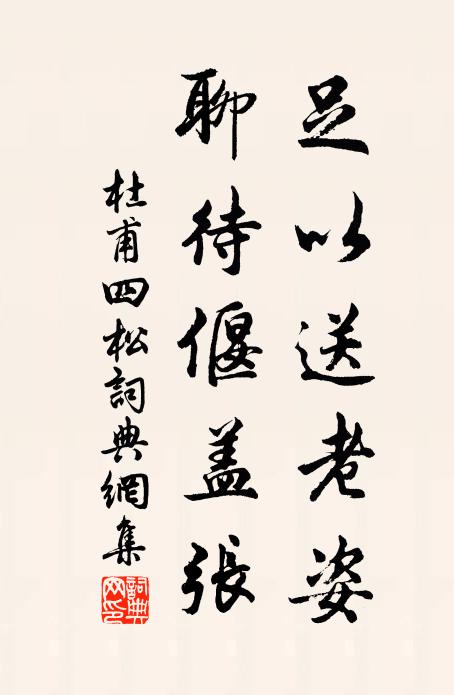 足以送老姿
聊待偃盖張
杜甫四松詞典網集
詞典网印